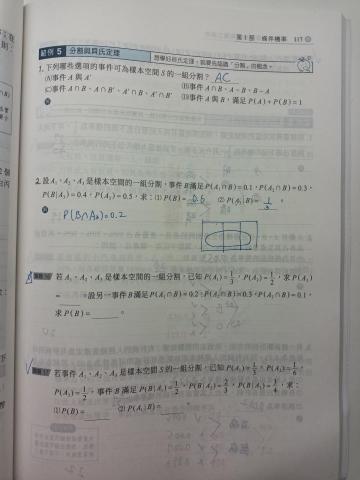 第1部 條件機率 117
範例 5 分割與貝氏定理
想學好貝氏定理,就要先認識「分割」的概念。
1. 下列哪些選項的事件可為樣本空間S的一組分割? AC
(A)事件A與A′ (B)事件A∩B、A−B、B−A
(C)事件A∩B、A∩B′、A′∩B、A′∩B′ (D)事件A與B,滿足P(A)+P(B)=1
解
2. 設A₁、A₂、A₃是樣本空間的一組分割,事件B滿足P(A₁∩B)=0.1,P(A₂∩B)=0.3,
P(B|A₃)=0.4,P(A₃)=0.5,求:(1) P(B)= 0.6 (2) P(A₃|B)= 1/3 。
解
P(B∩A₃)=0.2
若A₁、A₂、A₃是樣本空間的一組分割,已知P(A₁)=1/3,P(A₂)=1/2,求P(A₃)
= 。設另一事件B滿足P(A₁∩B)=0.2,P(A₂∩B)=0.3,P(A₃∩B)=0.1,
求P(B)= 。
若事件A₁、A₂、A₃是樣本空間S的一組分割,已知P(A₁)=1/3,P(A₂)=1/6,
P(A₃)=1/2,事件B滿足P(B|A₁)=1/2,P(B|A₂)=2/3,P(B|A₃)=1/4,求:
(1) P(B)= (2) P(A₁|B)= 。